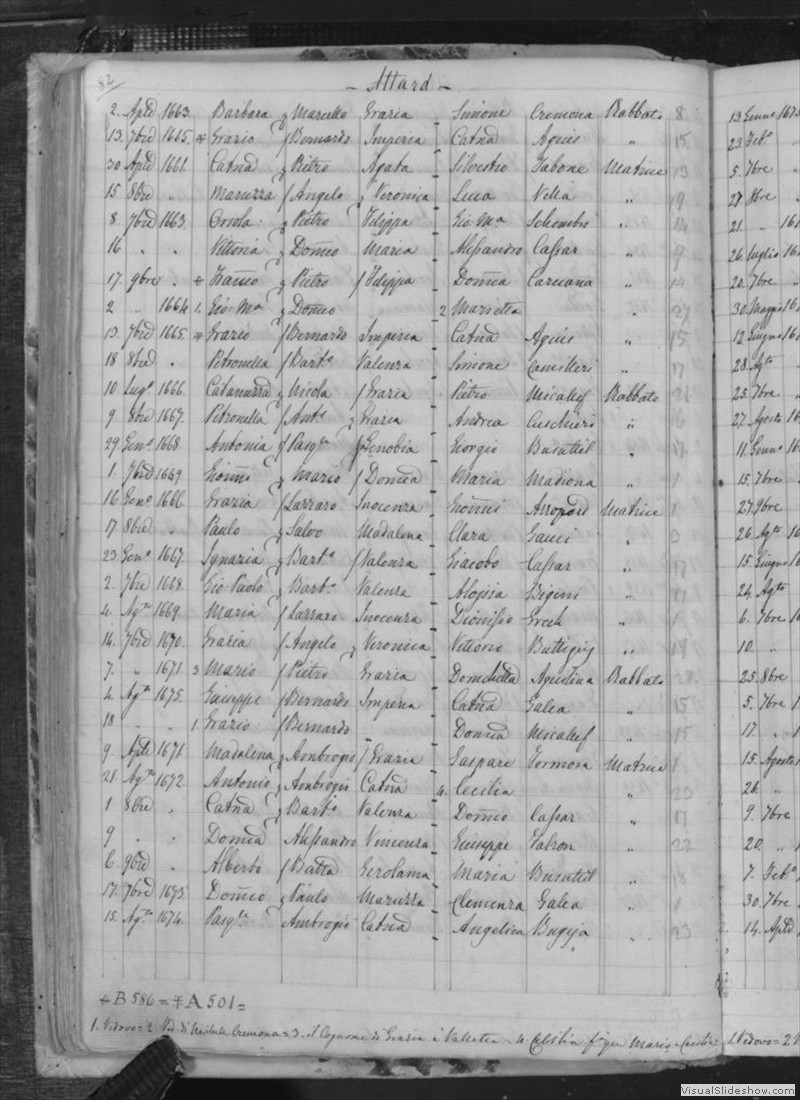 82
- Attard -
2. Aple 1663. Barbara Marcello Grazia Simone Cremona Rabbato 8
13. 7bre 1665. * Grazio Bernardo Imperia Catna Agius " 15
30 Aple 1661. Catna Pietro Agata Silvestro Fabone Matrice 13
15 8bre " Maruzza Angelo Veronica Luca Vella " 19
8 7bre 1663 Orsola Pietro Filippa Gio Ma Schembri " 14
16 " " Vittoria Domco Maria Alessandro Cassar " 9
17. 9bre " * Pietro Filippa Domca Caruana " 14
2 " 1664 1. Gio: Ma Domco 2 Marietta " 27
13. 7bre 1665. * Grazio Bernardo Imperia Catna Agius " 15
18 8bre " Petronella Barto Valenza Simone Camilleri " 17
10 Lugo 1666. Catarinuzza Nicola Grazia Pietro Micalef Rabbato 21
9 8bre 1667. Petronella Anto Grazia Andrea Cuschieri " 16
29 Geno 1668. Antonia Pasqle Zenobia Giorgio Busuttil " 17
1. 7bre 1669 Mario Domca Maria Madiona " 1
16 Geno 1666. Grazia Lazzaro Inocenza Matrice 1
17 8bre " Paulo Salvo Madalena Clara Gauci " 3
23 Geno 1667. Ignazia Barto Valenza Giacobo Cassar " 17
2. 7bre 1668. Gio Paolo Barto Valenza Aloysia " 17
4. Agto 1669. Maria Lazzaro Inocenza Dionisio Grech " 1
14. 7bre 1670. Grazia Angelo Veronica Vittorio Buttigieg " 19
7. " 1671. 3 Mario Pietro Grazia Agostina Rabbato 28
4. Agto 1675. Giuseppe Bernardo Imperia Catna Galea " 15
18 " " 1. Grazio Bernardo " Domca Micalef " 15
9. Aple 1671. Madalena Ambrogio Grazia Gaspare Formosa Matrice 1
21 Agto 1672. Antonio Ambrogio Catna 4. Cecilia " 23
1 8bre " Catna Barto Valenza Domco Cassar " 17
9 " " Domca Alessandro Vincenza Giuseppe Falzon " 22
6. 9bre " Alberto Batta Gerolama Maria Busuttil " 18
17. 7bre 1673. Domco Paulo Maruzza Clemenza Galea " 1
15. Agto 1674. Pasqle Ambrogio Catna Angelica Bugeja " 23
* B 586 = ‡ A 501 =
1. Vedovo = 2. Ved. di Cremona = 3. il Cognome di Grazia è Vallatta - 4. Mario e Cecilia =
13 Genno 1675
23 Febo
5. 7bre
27 8bre
21. " 161
26 Luglio 16
20. 7bre
30. Maggio 16
12. Giugno 16
28. Agto
25. 7bre
27. Agosto 16
11. Genno 16
15. 7bre
27. 9bre
26. Agto 16
15. Giugno 16
24. Agto
6. 7bre 1
10. "
25. 8bre
5. 7bre 1
17. "
15. Agosto
26. "
9. 7bre
20. "
7. Febo
30. 7bre
14. Aple
1. Vedovo = 2.
VisualSlideshow.com